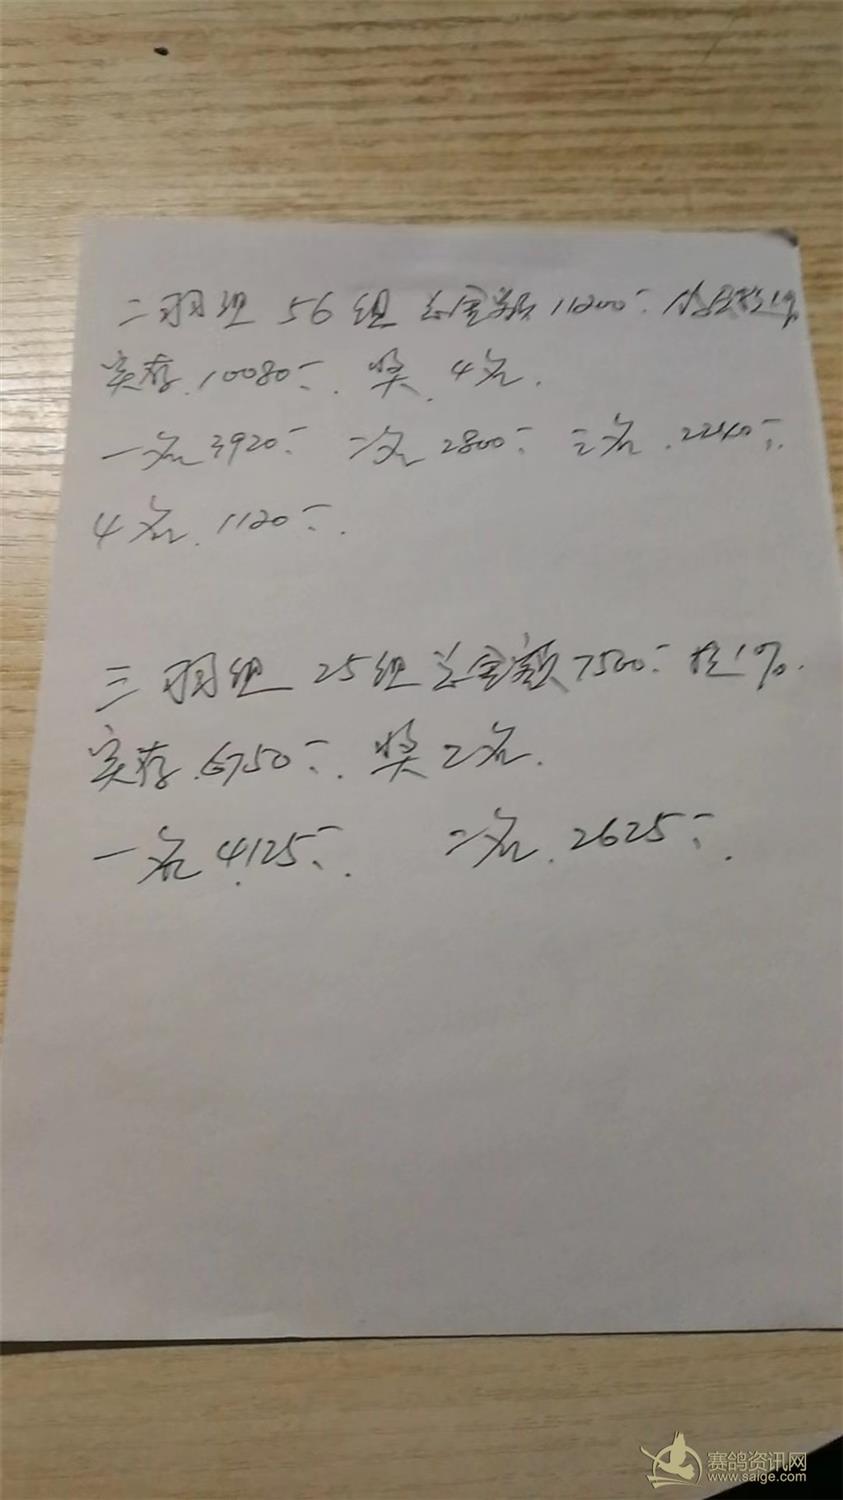 二羽组 56组 总金额11200元 扣1%
实存.10080元. 奖.4名.
一名3920元 二名2800元 三名.2240元.
4名.1120元.
三羽组 25组总金额7500元 扣1%.
实存.6750元. 奖2名.
一名4125元. 二名.2625元.
赛鸽资讯网
www.saige.com